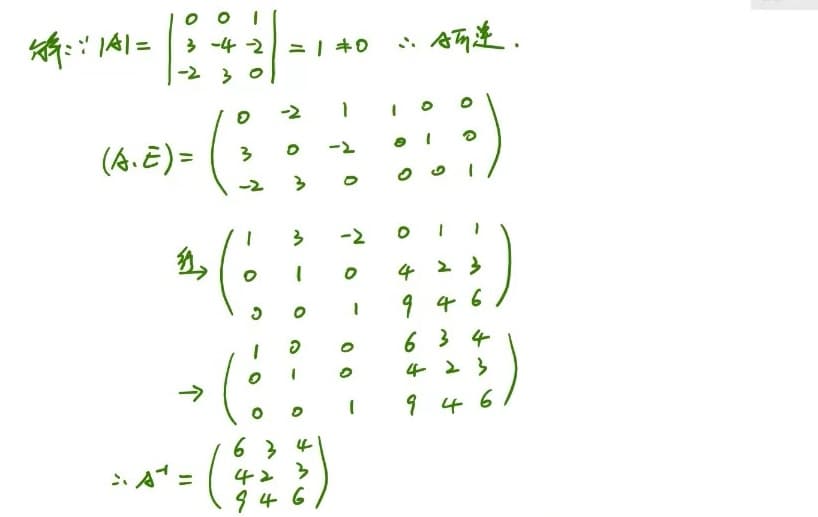 解:∵ |A| = | 0 0 1 |
| 3 -4 -2 | = 1 ≠ 0 ∴ A可逆.
| -2 3 0 |
( 0 -2 1 1 0 0 )
(A.E) = ( 3 0 -2 0 1 0 )
( -2 3 0 0 0 1 )
( 1 3 -2 0 1 1 )
→ ( 0 1 0 4 2 3 )
( 0 0 1 9 4 6 )
( 1 0 0 6 3 4 )
→ ( 0 1 0 4 2 3 )
( 0 0 1 9 4 6 )
( 6 3 4 )
∴ A⁻¹ = ( 4 2 3 )
( 9 4 6 )